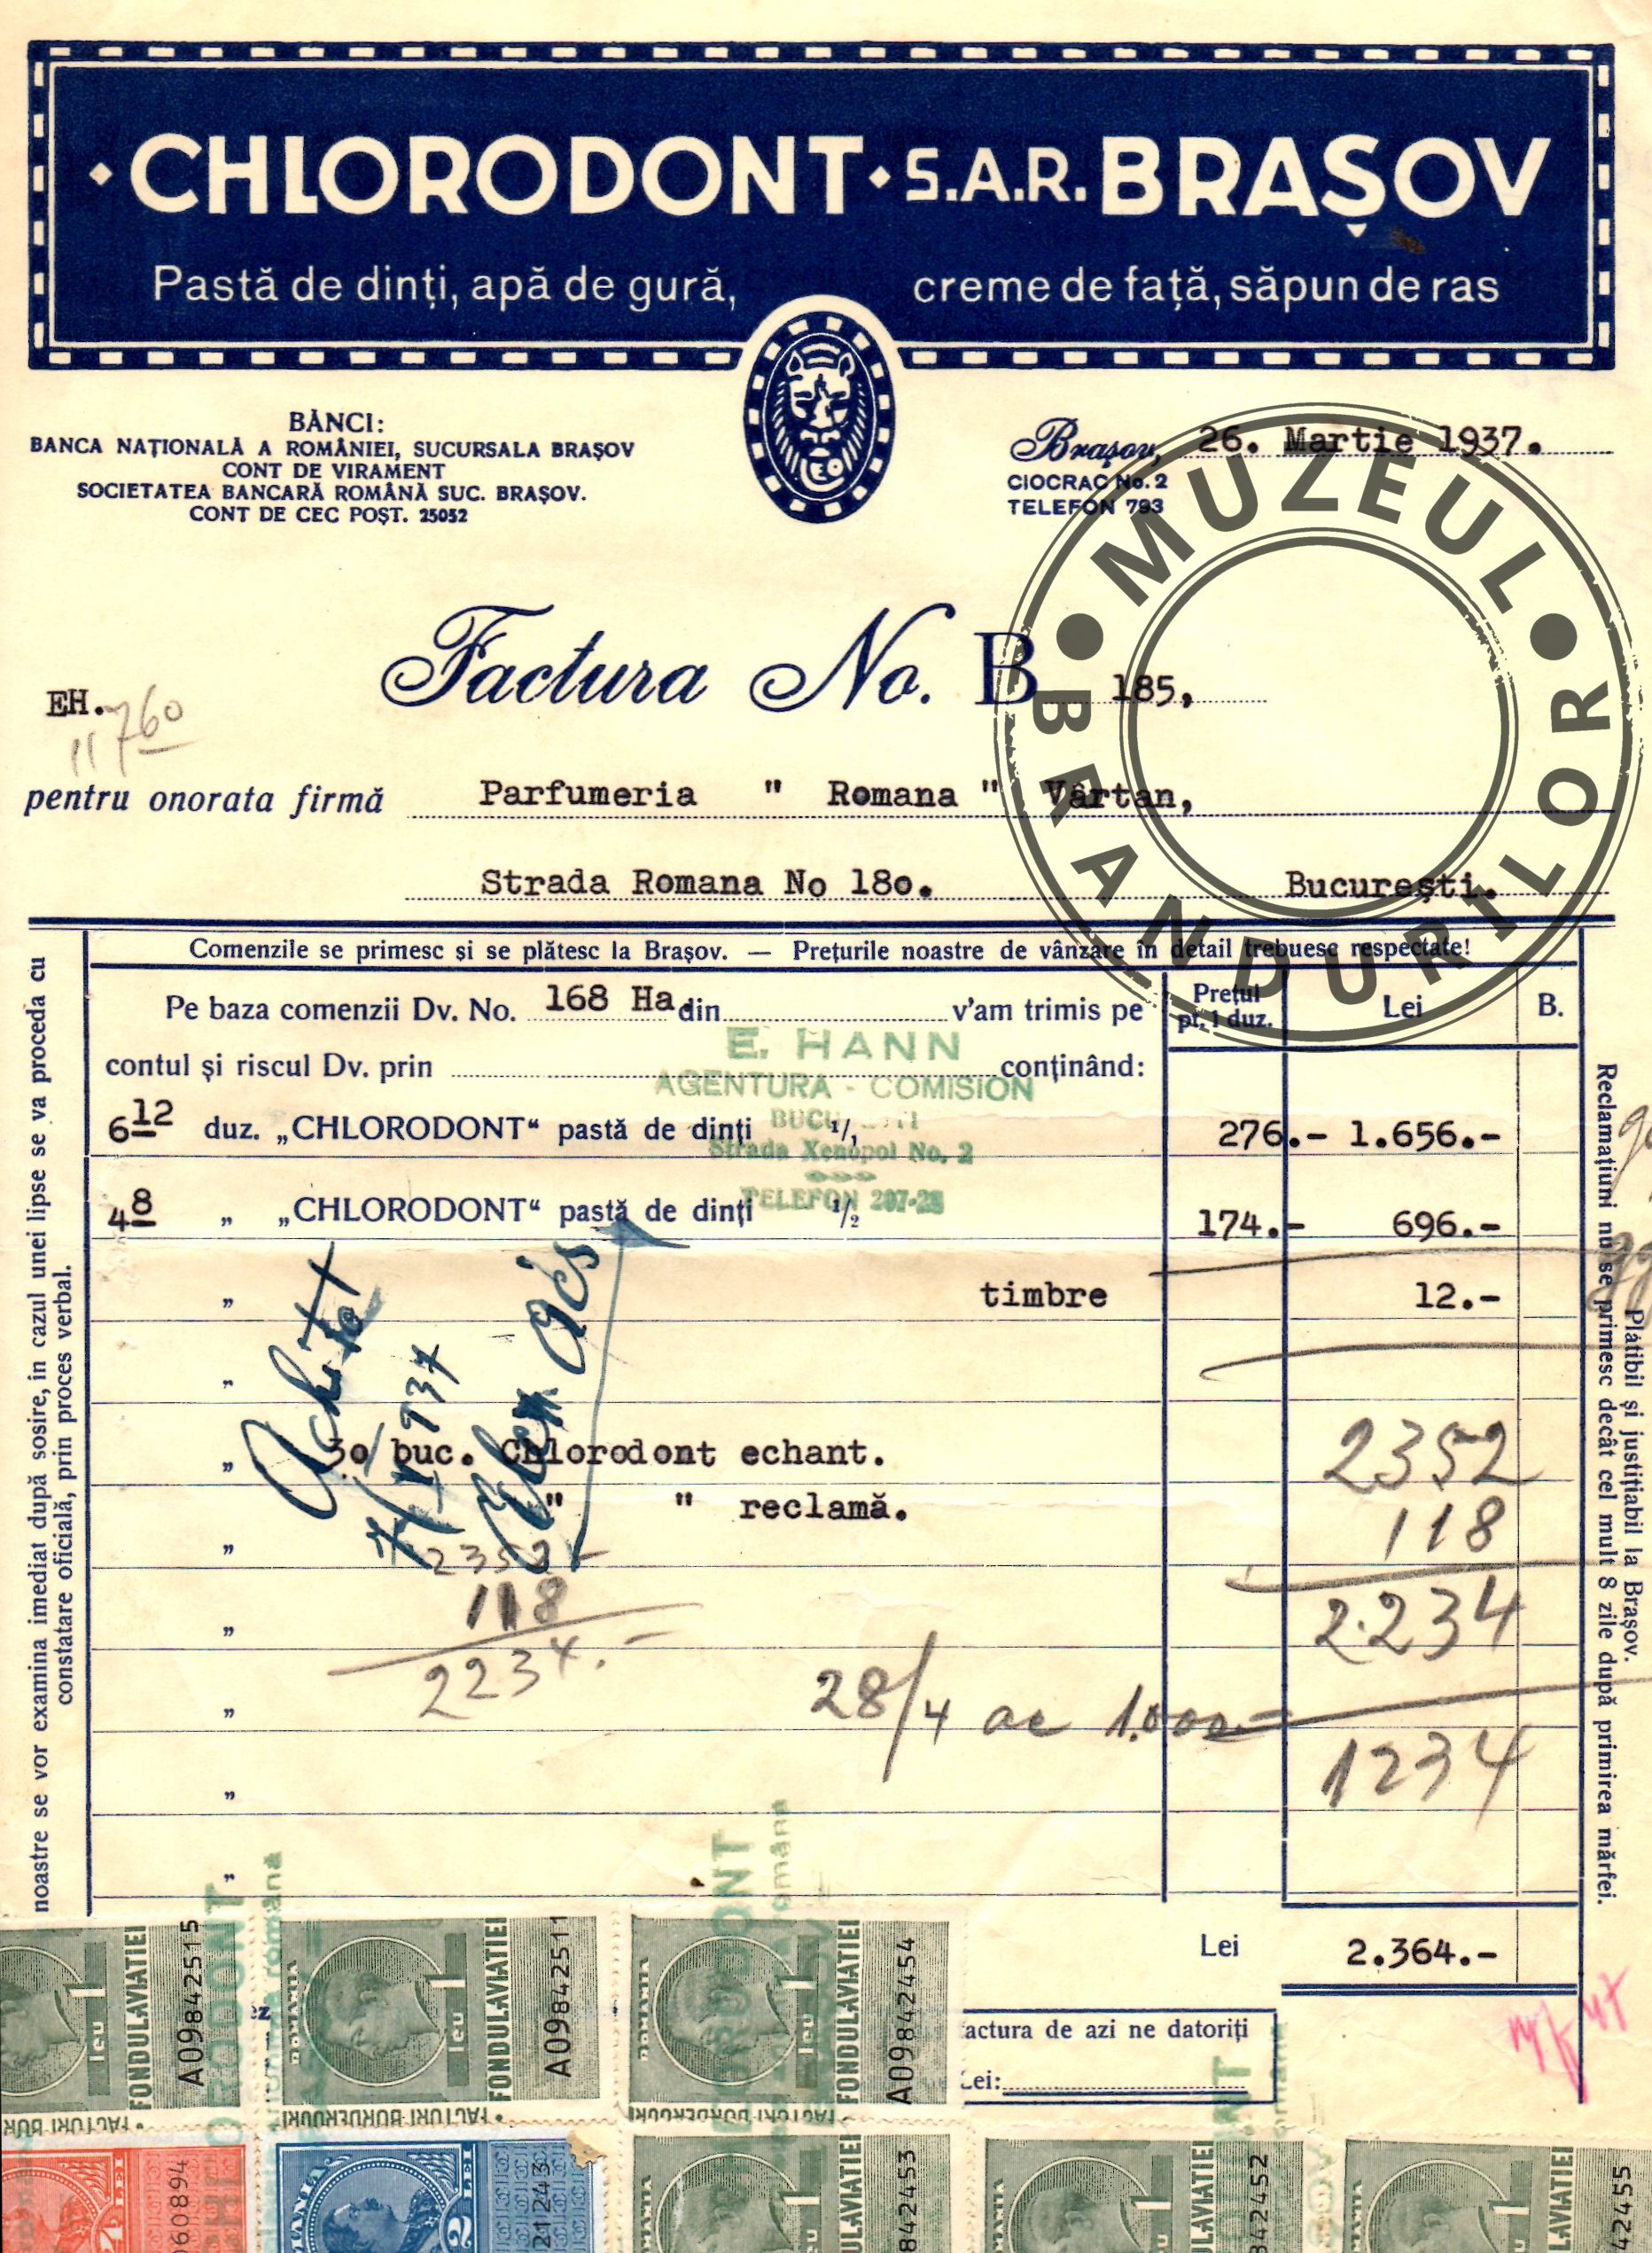 CHLORODONT · S.A.R. BRAȘOV
Pastă de dinți, apă de gură, creme de față, săpun de ras
BĂNCI:
BANCA NAȚIONALĂ A ROMÂNIEI, SUCURSALA BRAȘOV
CONT DE VIRAMENT
SOCIETATEA BANCARĂ ROMÂNĂ SUC. BRAȘOV.
CONT DE CEC POȘT. 25052
LEO
Brașov, 26. Martie 1937.
CIOCRAC No. 2
TELEFON 793
MUZEUL BRANDURILOR
Factura No. B 185,
EH.
11760
pentru onorata firmă Parfumeria " Romana " Vârtan,
Strada Romana No 18o. București.
Comenzile se primesc și se plătesc la Brașov. — Prețurile noastre de vânzare în detail trebuesc respectate!
Pe baza comenzii Dv. No. 168 Ha din v'am trimis pe
Prețul pt. 1 duz. Lei B.
contul și riscul Dv. prin conținând:
E. HANN
AGENTURA - COMISION
Strada Xenopol No. 2
TELEFON 207-28
6 12 duz. „CHLORODONT“ pastă de dinți 1/1 276.- 1.656.-
4 8 „ „CHLORODONT“ pastă de dinți 1/2 174.- 696.-
„ timbre 12.-
„
„ 3o buc. Chlorodont echant.
" " reclamă.
„
Achitat
2352
118
2.234
2352-
118
2234.-
28/4 ac 1.000=
1234
„
„
„
„
Lei 2.364.-
actura de azi ne datoriți
Lei:
noastre se vor examina imediat după sosire, in cazul unei lipse se va proceda cu
constatare oficială, prin proces verbal.
Plătibil și justițiabil la Brașov.
Reclamațiuni nu se primesc decât cel mult 8 zile după primirea mărfei.
1 leu FONDUL AVIATIEI A09842515
ROMANIA 1 leu FONDUL AVIATIEI A09842511
ROMANIA 1 leu FONDUL AVIATIEI A09842454
FACTURI BORDEROURI
FACTURI BORDEROURI
FACTURI BORDEROURI
4 LEI 060894
2 LEI 212443
842453
842452
42455